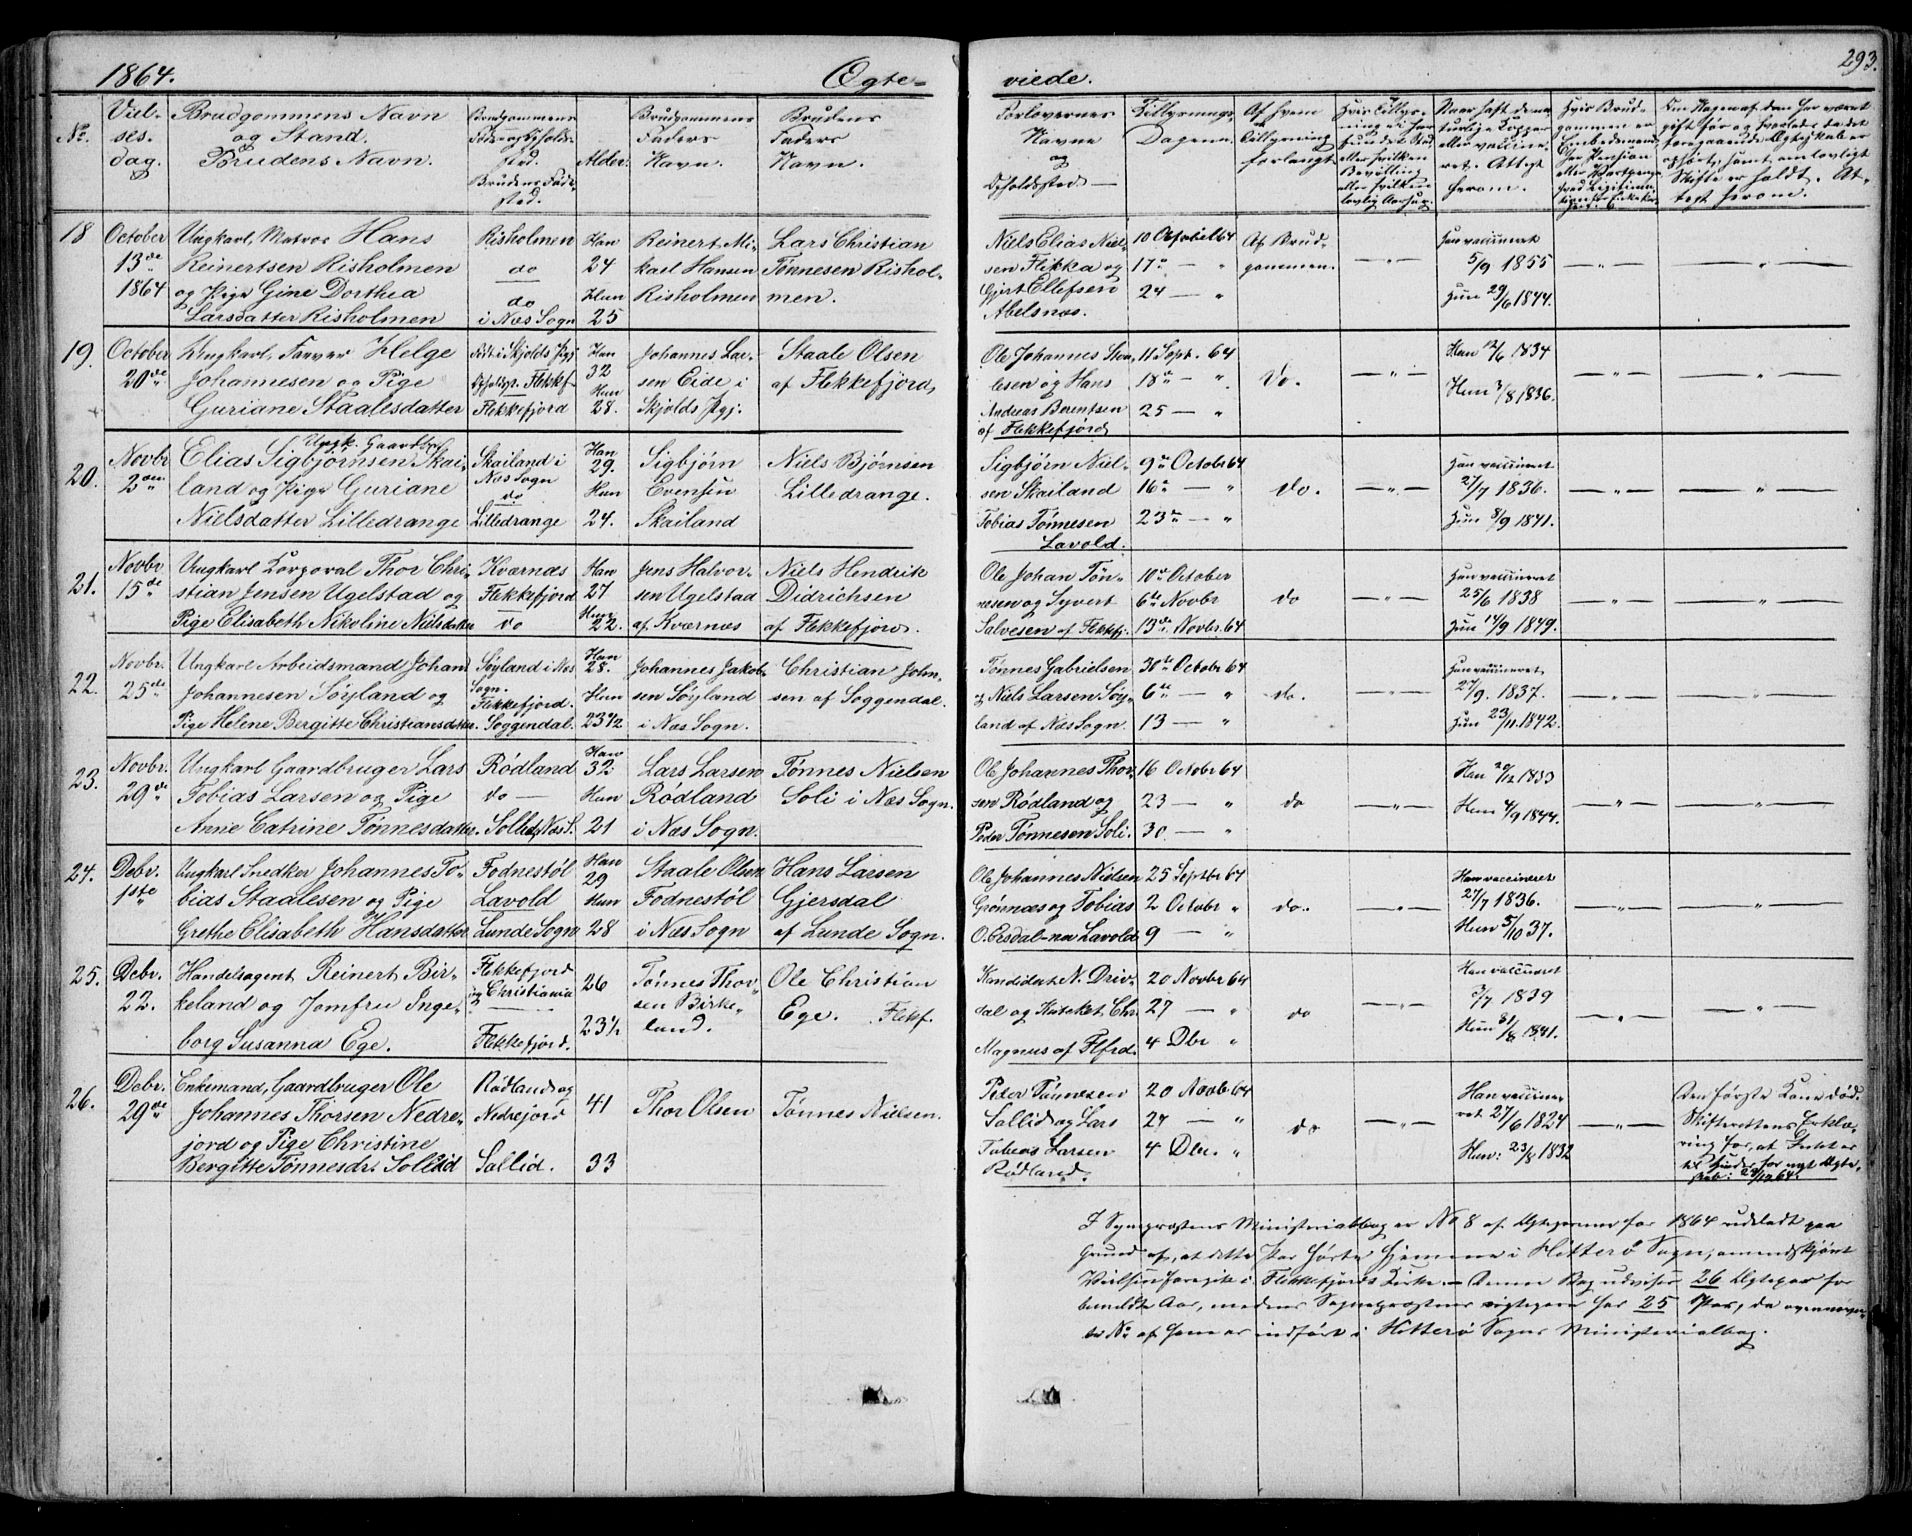 1864.
Ægte-
viede.
293.
No.
Viel-
ses.
dag.
Brudgommens Navn
og Stand.
Brudens Navn.
Brudgommens
Føde- og Opholds-
sted.
Brudens Føde-
sted.
Alder.
Brudgommens
Faders
Navn.
Brudens
Faders
Navn.
Forlovernes
Navne
og
Opholdssted
Tillysnings-
Dagene.
Af hvem
Tillysning
forlangt.
18
October
13de
1864
Ungkarl, Matros Hans
Reinertsen Risholmen
og Pige Gine Dorthea
Larsdatter Risholmen
Risholmen
do
do
i Næs Sogn
Han
24
Hun
25
Reinert Mi-
kael Hansen
Risholmen
Lars Christian
Tønnesen Rishol-
men.
Niels Elias Niel-
sen Flikka og
Gjert Ellefsen
Abelsnæs.
10 October 64
17de — "
24 — "
Af Brud-
gommen.
— " —
Han vaccineret
5/9 1855
Hun 29/6 1844.
— " —
— " —
19.
October
20de
Ungkarl, Farver Helge
Johannesen og Pige
Guriane Staalesdatter
Født i Skjolds Pgj.
Opholdst. Flekkef.
Flekkefjord
Han
32
Hun
28.
Johannes Lar-
sen Eide i
Skjolds Pgj.
Staale Olsen
af Flekkefjord,
Ole Johannes Staa-
lesen og Hans
Andreas Berentsen
af Flekkefjord
11 Sept. 64
18de — "
25 — "
Do.
— " —
Han 12/6 1834
Hun 3/8 1836.
— " —
— " —
20.
Novbr
2den
Ungk. Gaardbr.
Elias Sigbjørnsen Skai-
land og Pige Guriane
Nielsdatter Lilledrange
Skailand i
Næs Sogn
do
Lilledrange
Han
29.
Hun
24.
Sigbjørn
Evensen
Skailand
Niels Bjørnsen
Lilledrange.
Sigbjørn Niel-
sen Skailand
Tobias Tønnesen
Lavold.
9de Octobr 64
16de — "
23de — "
do.
— " —
Han vaccineret
27/7 1836.
Hun 8/9 1841.
— " —
— " —
21.
Novbr
15de
Ungkarl Korporal Thor Chri-
stian Jensen Ugelstad og
Pige Elisabeth Nikoline Nielsdatter
Kværnæs
Flekkefjord
do
Han
27
Hun
22.
Jens Halvor-
sen Ugelstad
af Kværnæs
Niels Hendrik
Didrichsen
af Flekkefjord.
Ole Johan Tøn-
nesen og Syvert
Salvesen af Flekkefj.
10de October
6te Novbr
13de Novbr. 64
do
— " —
Han vaccineret
25/6 1838
Hun 14/9 1849.
— " —
— " —
22.
Novbr.
25de
Ungkarl Arbeidsmand Johan
Johannesen Søyland og
Pige Helene Bergitte Christiansdatter.
Søyland i Næs
Sogn.
Flekkefjord.
Soggendal.
Han
28.
Hun
23 1/2
Johannes Jakob-
sen Søyland
i Næs Sogn.
Christian John-
sen af Soggendal.
Tønnes Gabrielsen
og Niels Larsen Søy-
land af Næs Sogn.
30te Octobr 64
6te — "
13 — "
do.
— " —
Han vaccineret
27/9. 1837.
Hun 23/11. 1842.
— " —
— " —
23.
Novbr.
29de
Ungkarl Gaardbruger Lars
Tobias Larsen og Pige
Anne Catrine Tønnesdatter.
Rødland
do —
Sollid, Næs S.
Han
32
Hun
21
Lars Larsen
Rødland
i Næs Sogn.
Tønnes Nielsen
Soli i Næs Sogn.
Ole Johannes Thor-
sen Rødland og
Peder Tønnesen Soli.
16 Octobr 64
23 — "
30 — "
do
— " —
Han 20/12 1833
Hun 4/9 1844.
— " —
— " —
24.
Debr.
1ste
Ungkarl Snedker Johannes To-
bias Staalesen og Pige
Grethe Elisabeth Hansdatter
Fodnestøl
Lavold
Lunde Sogn
Han
29
Hun
28
Staale Olsen
Fodnestøl
i Næs Sogn
Hans Larsen
Gjersdal
af Lunde Sogn.
Ole Johannes Nielsen
Grønnæs og Tobias
Lavold
25 Septbr 64
2 Octobr "
9 — "
do.
— " —
Han vaccineret
27/7 1836.
Hun 5/10 37.
— " —
— " —
25.
Debr.
22.
Handelsagent Reinert Bir-
keland og Jomfru Inge-
borg Susanna Ege.
Flekkefjord
og Christiania
Flekkefjord.
26
23 1/2
Tønnes Thor-
sen Birke-
land.
Ole Christian
Ege. Flekf.
Kandidat N. Driv-
dal og Chr.
Magnus af Flfrd.
20 Novbr 64
27 — "
4 Dbr "
do
— " —
Han vaccineret
3/7 1839
Hun 31/8 1841.
— " —
— " —
26.
Debr.
29de
Enkemand, Gaardbruger Ole
Johannes Thorsen Nedre-
jord og Pige Christine
Bergitte Tønnesdr. Sollid
Rødland og
Nedrejord
Sollid.
41
33
Thor Olsen
Tønnes Nielsen.
Peder Tønnesen
Sollid og Lars
Tobias Larsen
Rødland.
20 Novb 64
27 — "
4 Dbr. "
do
— " —
Han vaccine-
ret 27/6 1824
Hun: 23/8 1832
— " —
Den første Kone død.
Skifterettens Erklæ-
ring for, at Intet er
til Hinder for nyt Ægte-
skab: 29/12 64.
I Sognepræstens Ministerialbog er No 8 af Ægteparrene for 1864 udeladt paa
Grund af, at dette Par hørte hjemme i Hitterø Sogn, omendskjønt
Vielsen foregik i Flekkefjords Kirke. — Denne Bog udviser 26 Ægtepar for
bemeldte Aar, medens Sognepræstens rigtigere har 25 Par, da ovennævn-
te No af ham er indført i Hitterø Sogns Ministerialbog.